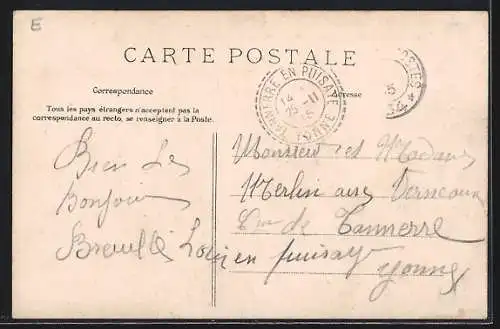 E
CARTE POSTALE
Correspondance
Adresse
Tous les pays étrangers n'acceptent pas la
correspondance au recto, se renseigner à la Poste.
TANNERRE EN PUISAYE
14
25 -11
15
YONNE
POSTES
5
34 *
Bien les
Bonjour
Breuillé Louis
Monsieur et Madame
Merlin aux Verneaux
Cne de Tannerre
en puisay
yonne